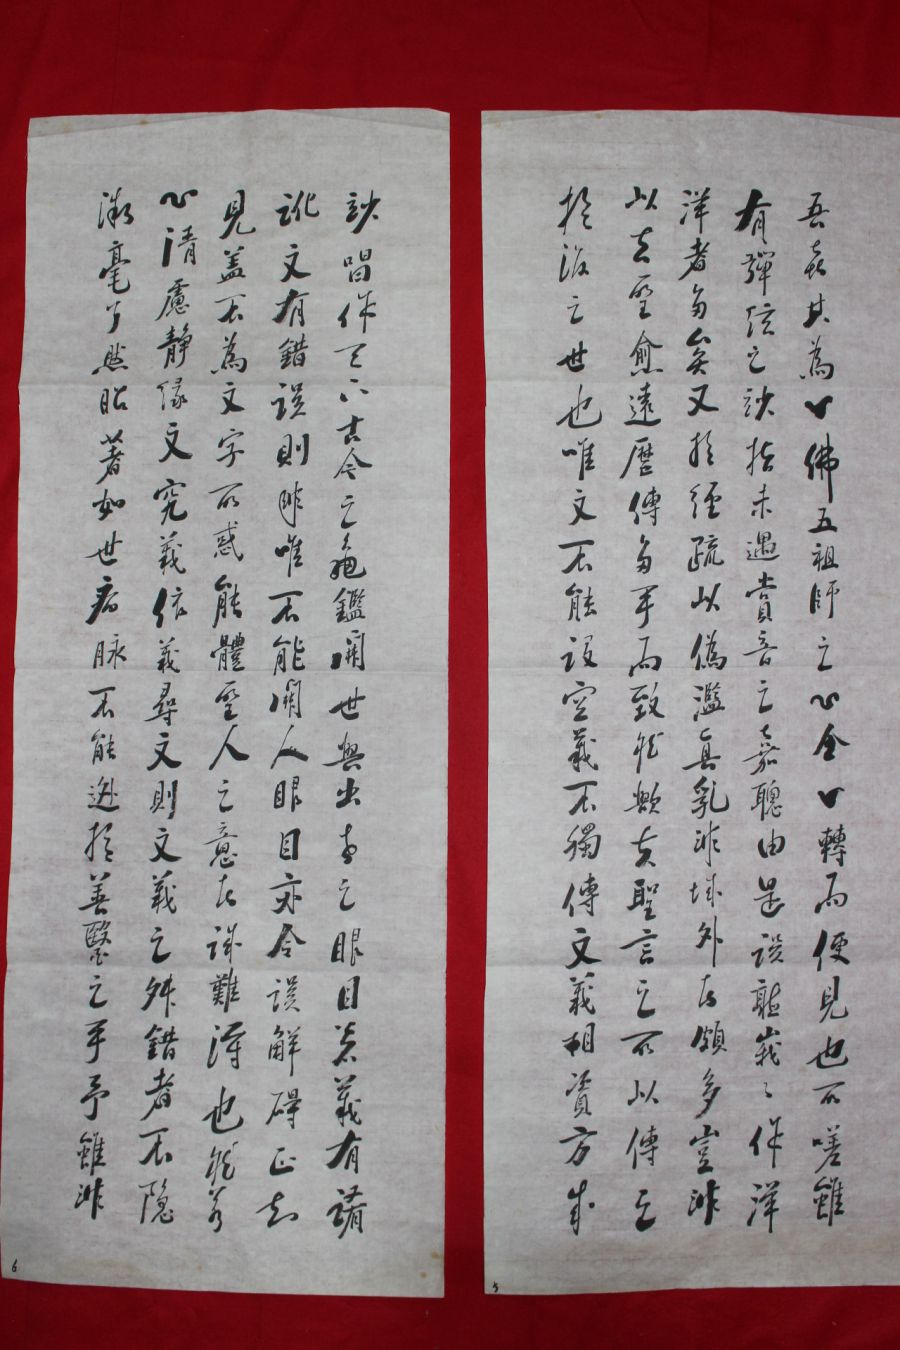 吾喜其為一佛五祖師之心今一轉而便見也所嗟雖
有彈絃之妙指未遇賞音之嘉聰由是誤聽峩〻作洋
洋者多矣又於經疏以偽濫真乳非城外者頗多豈非
以去聖愈遠歷傳多手而致然歟夫聖言之所以傳之
於後之世也唯文不能設空義不獨傳文義相資方成
妙唱作天下古今之龜鑑開世與出世之眼目若義有誵
訛文有錯誤則非唯不能開人眼目亦令誤解碍正知
見盖不為文字所惑能體聖人之意者誠難得也然若
心清慮靜緣文究義依義尋文則文義之舛錯者不隱
微毫了然昭著如世病脉不能逃於善醫之手予雖非
5
6